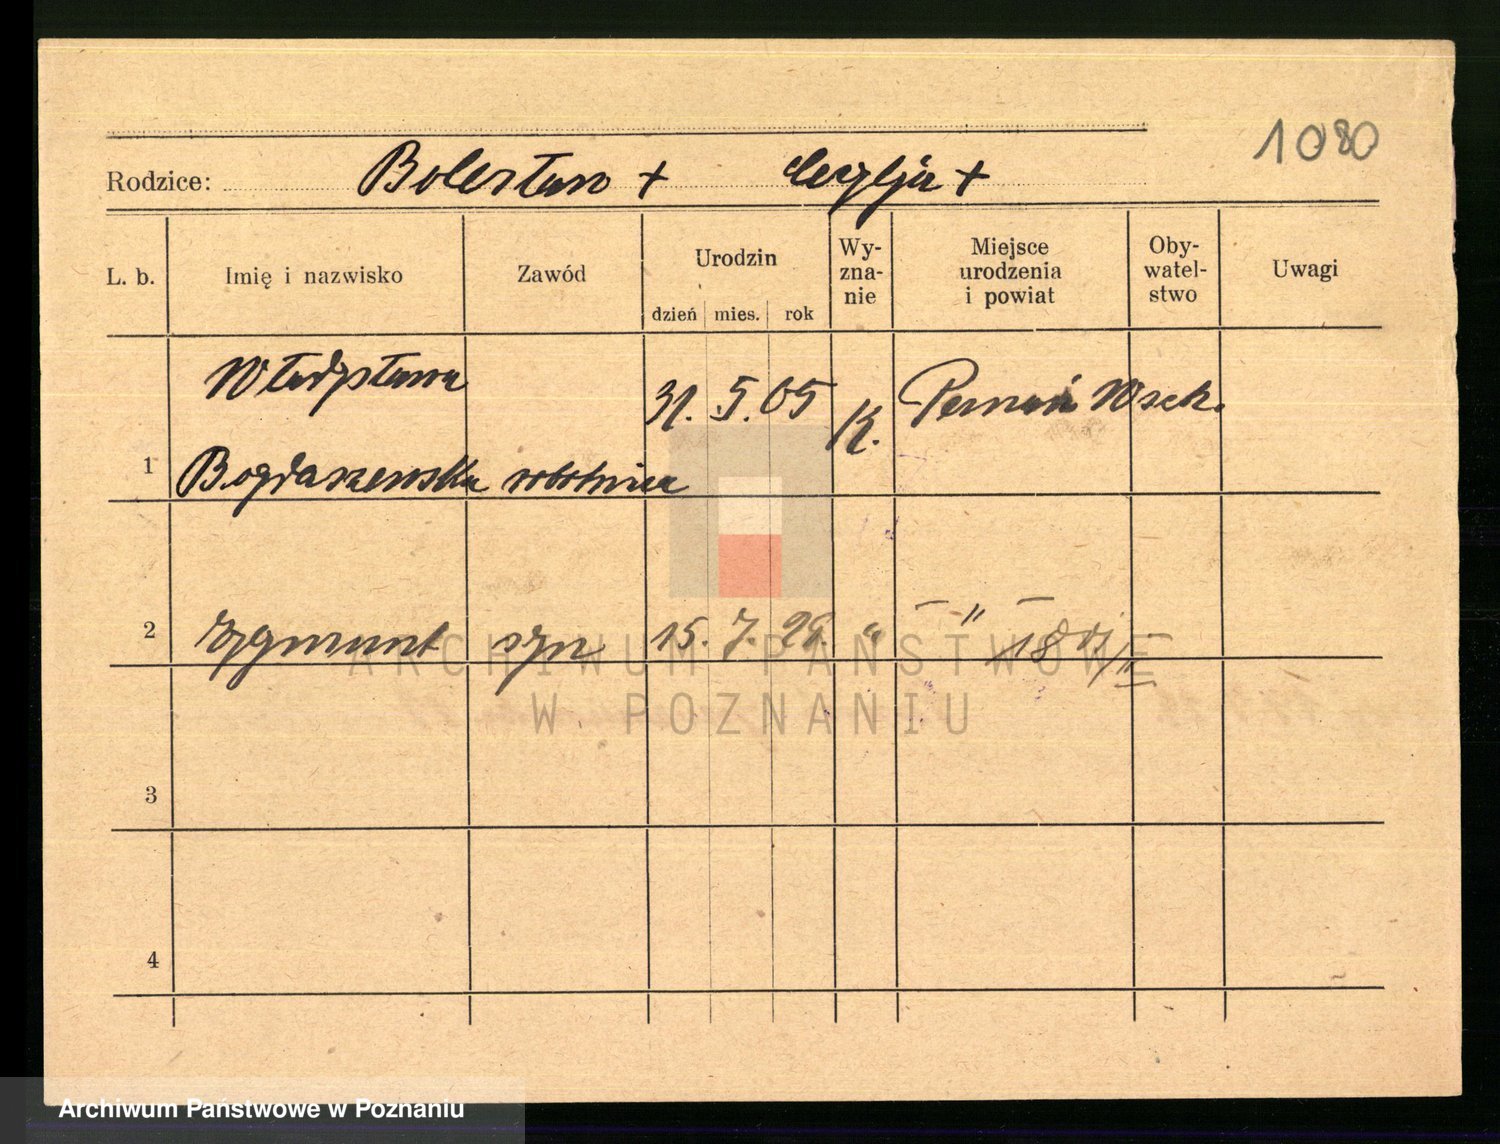 1080
Rodzice: Bolesław + Cecylja +
L. b. Imię i nazwisko Zawód Urodzin Wy-zna-nie Miejsce urodzenia i powiat Oby-watel-stwo Uwagi
dzień mies. rok
Władysława
31. 5. 05 K. Poznań Wsch.
1 Bogdaszewska robotnica
2 Zygmunt syn 15. 7. 28. " — " —
ARCHIWUM PAŃSTWOWE
W POZNANIU
3
4
Archiwum Państwowe w Poznaniu